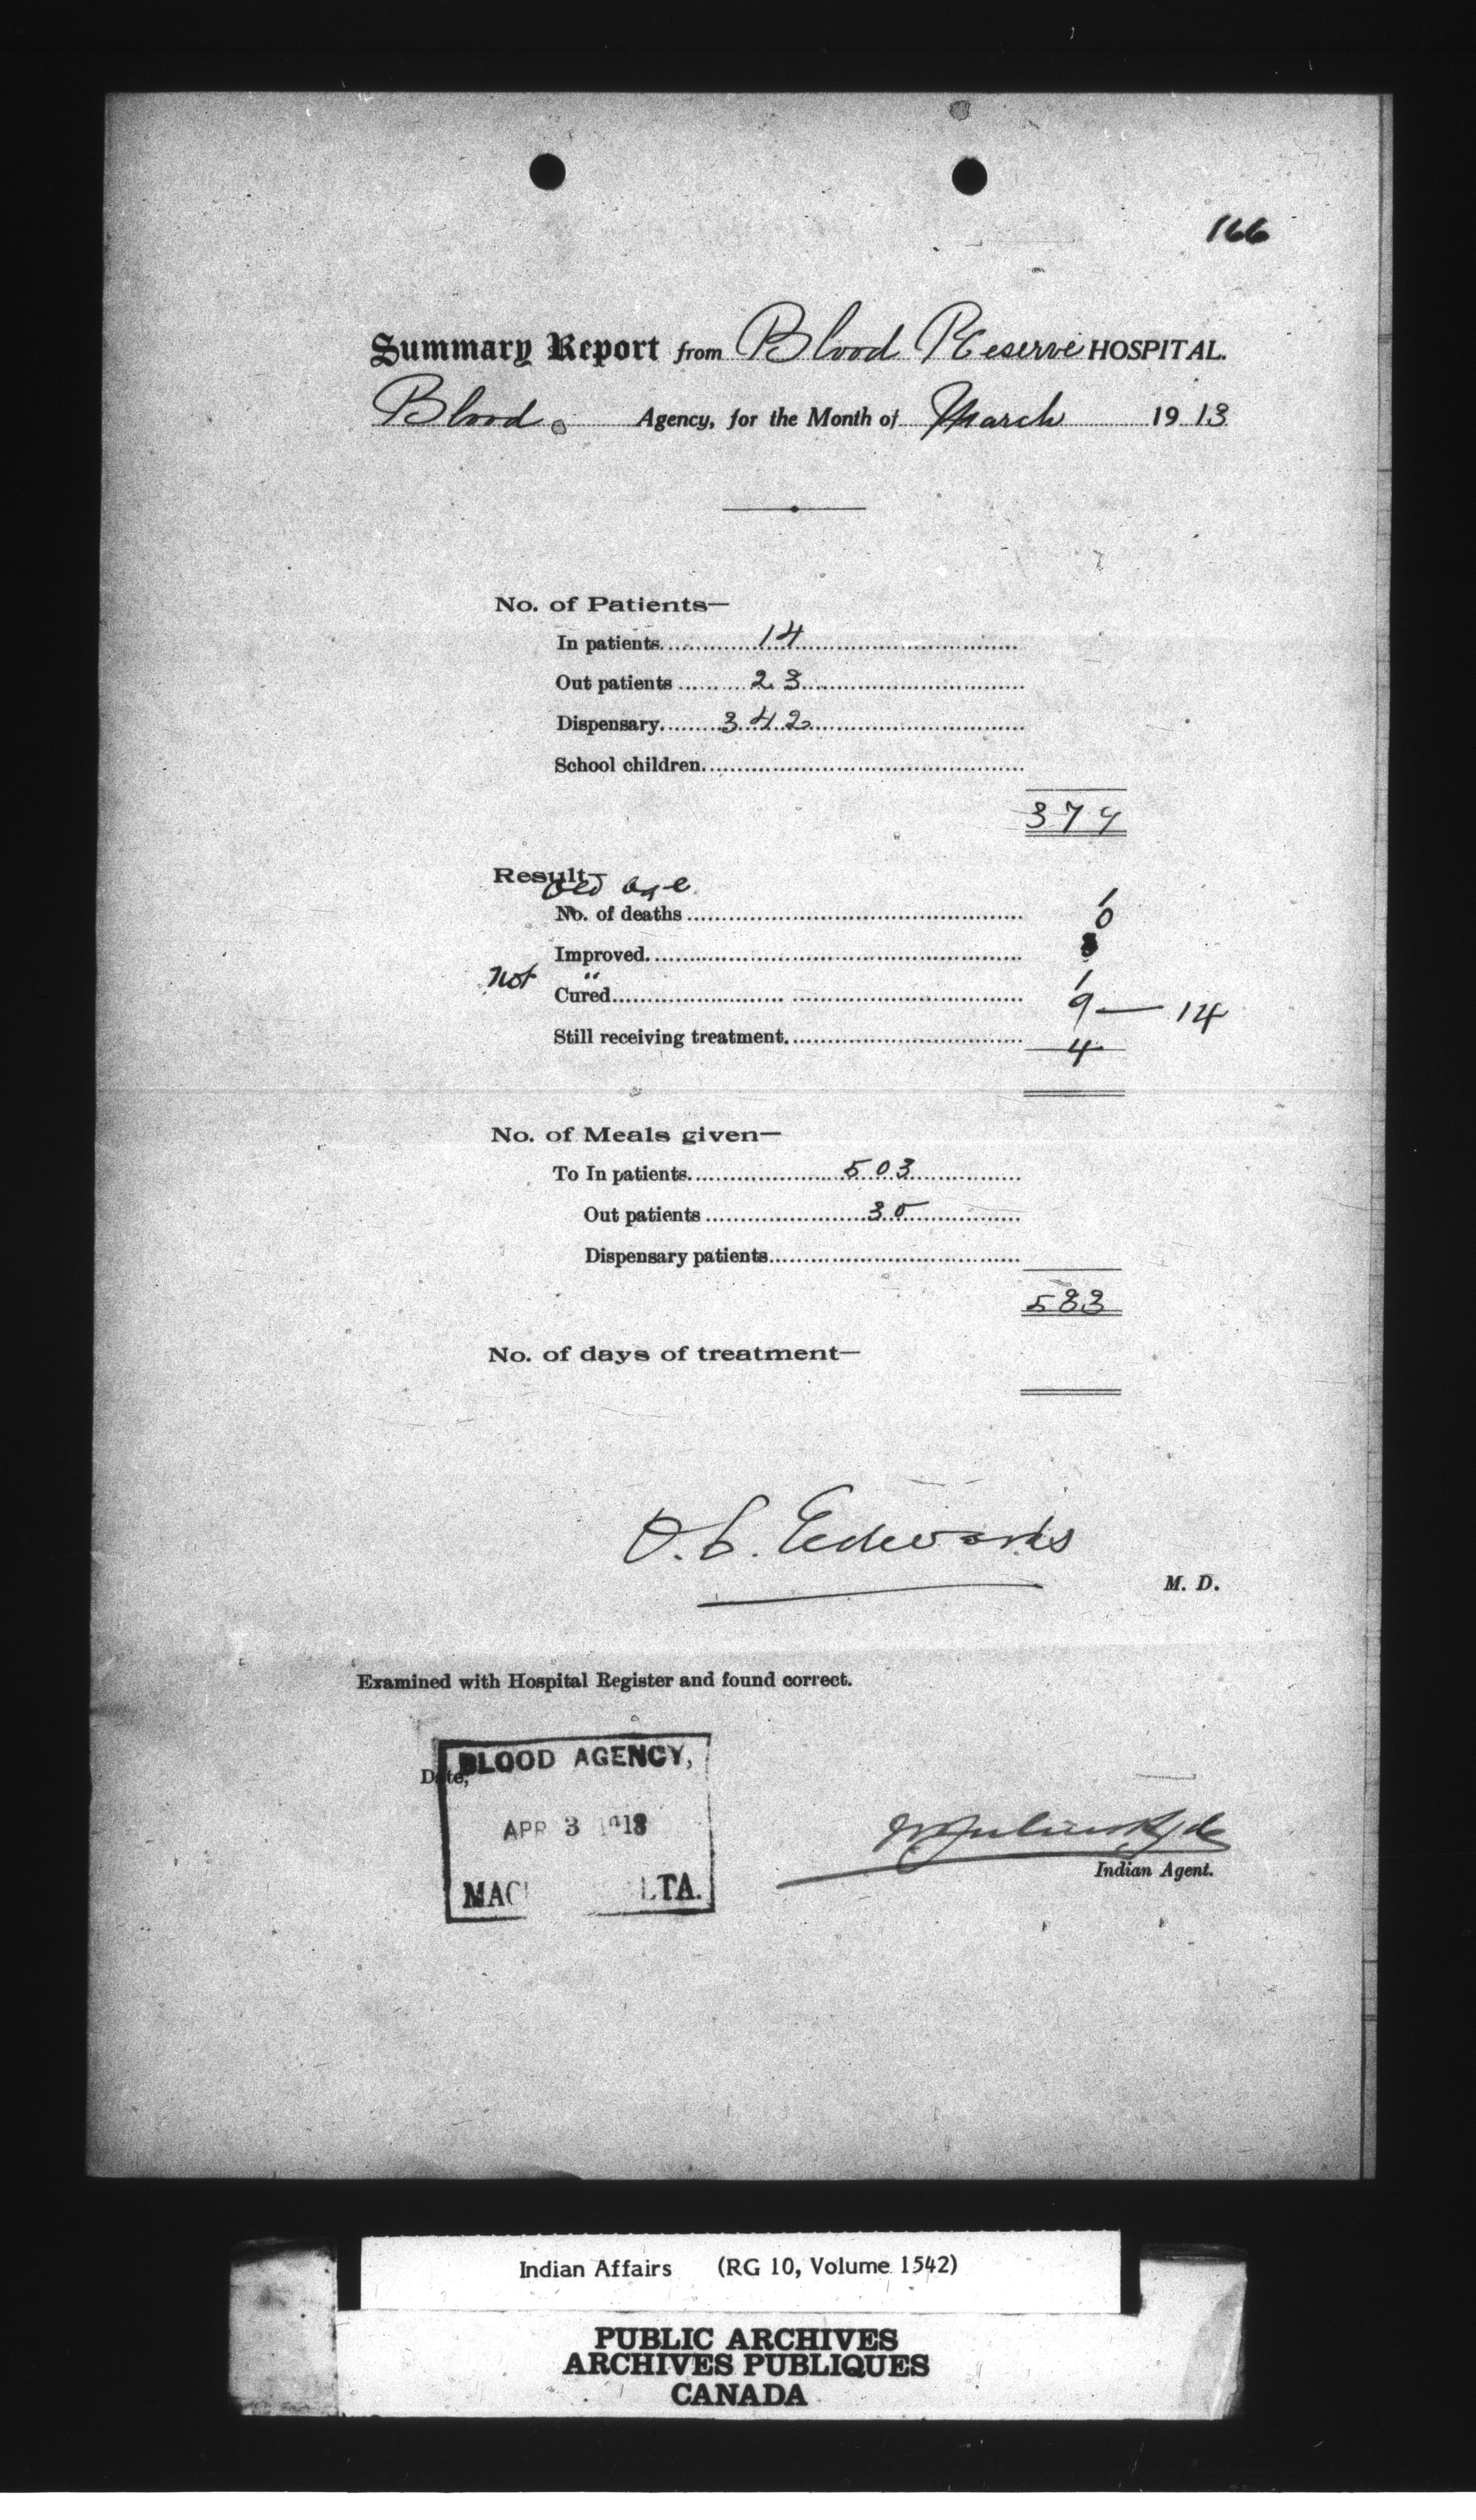 166
Summary Report from Blood Reserve HOSPITAL.
Blood. Agency, for the Month of March 1913
No. of Patients—
In patients 14
Out patients 23
Dispensary 342
School children
379
Result—
Old age 1
No. of deaths 0
Improved 3
Not " 1
Cured 9 — 14
Still receiving treatment 4
No. of Meals given—
To In patients 503
Out patients 30
Dispensary patients
533
No. of days of treatment—
O. C. Edwards
M. D.
Examined with Hospital Register and found correct.
Date,
BLOOD AGENCY,
APR 3 1913
MAC LTA.
Indian Agent.
Indian Affairs (RG 10, Volume 1542)
PUBLIC ARCHIVES
ARCHIVES PUBLIQUES
CANADA